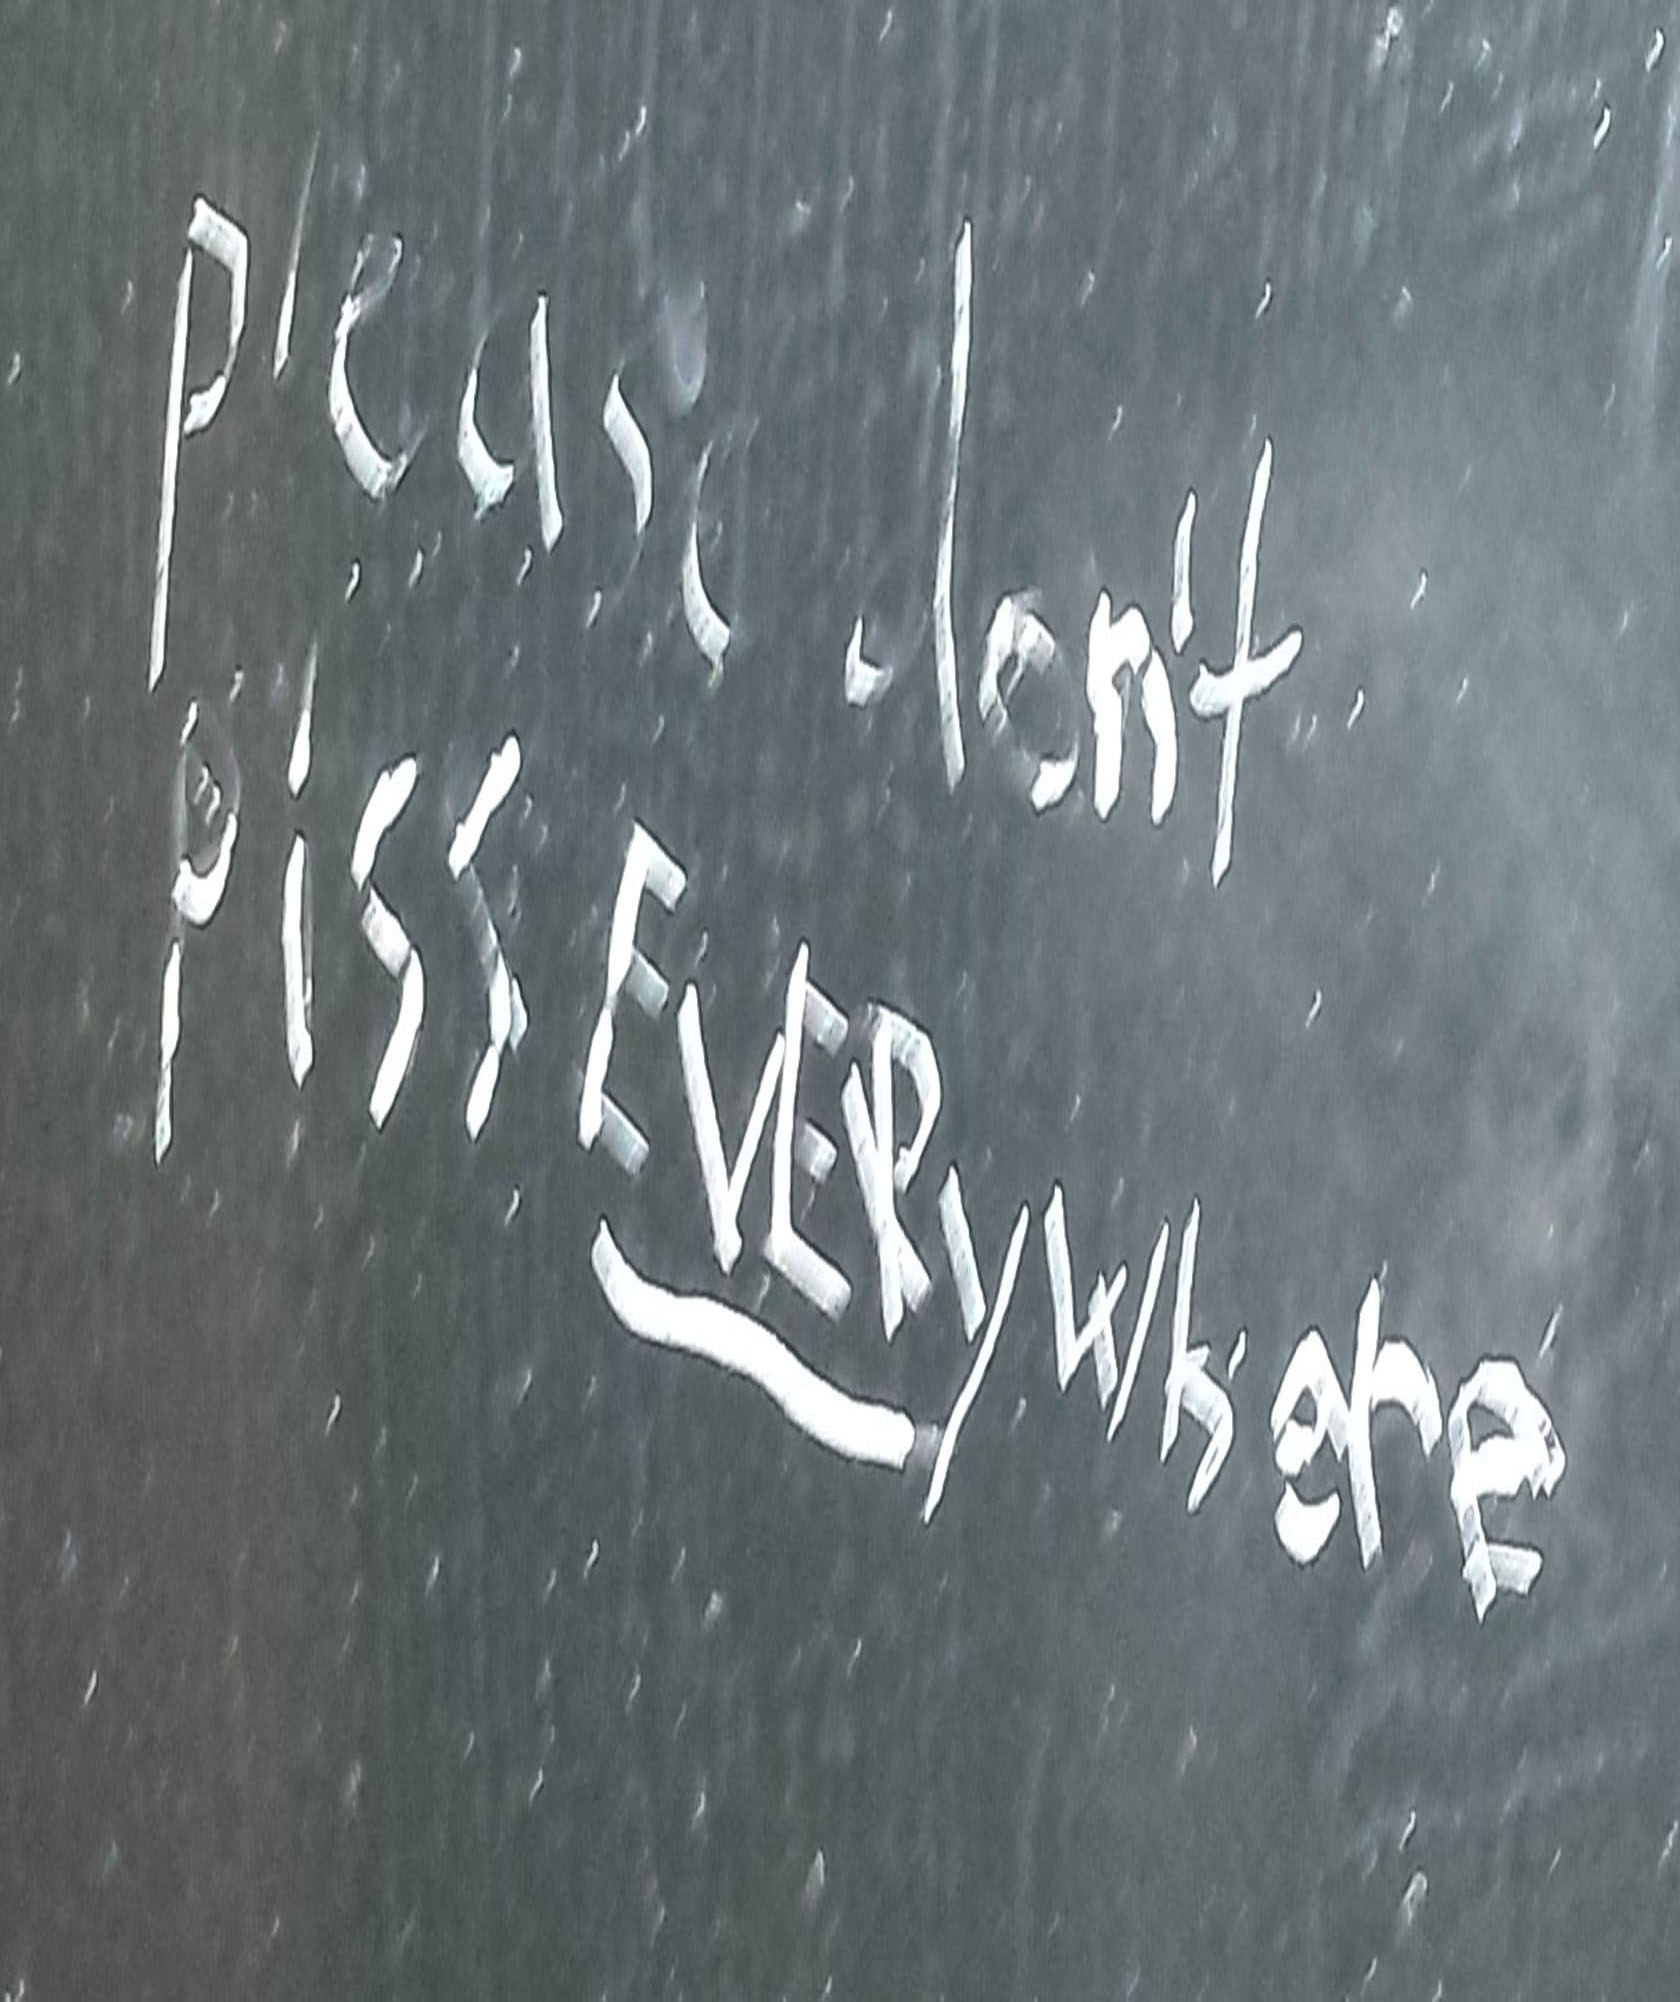 Please don't
piss EVERywhere